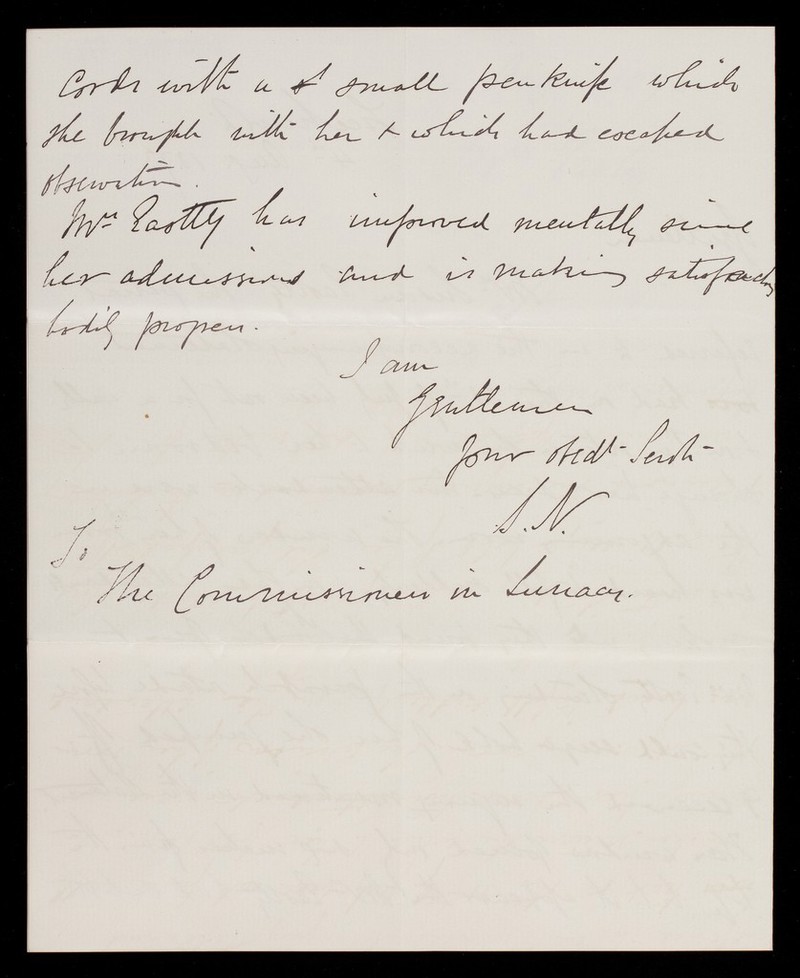 cords with a small penknife which
she brought with her & which had escaped
observation.
Mrs Eastty has improved mentally since
her admission and is making satisfactory
bodily progress.
I am
Gentlemen
Your obedt Servt
S. N.
To
The Commissioners in Lunacy.